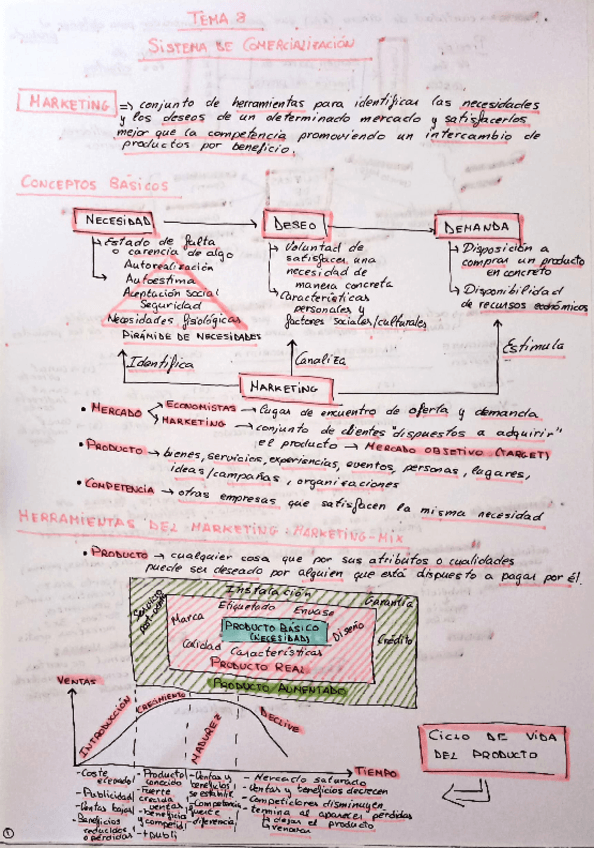 TEMA 3
SISTEMA DE COMERCIALIZACIÓN
MARKETING => conjunto de herramientas para identificar las necesidades
y los deseos de un determinado mercado y satisfacerlos
mejor que la competencia promoviendo un intercambio de
productos por beneficio.
CONCEPTOS BÁSICOS
NECESIDAD → DESEO → DEMANDA
↳ Estado de falta
o carencia de algo
Autorealización
Autoestima
Aceptación social
Seguridad
Necesidades fisiológicas
PIRÁMIDE DE NECESIDADES
↳ Voluntad de
satisfacer una
necesidad de
manera concreta
↳ Características
personales y
factores sociales/culturales
↳ Disposición a
comprar un producto
en concreto
↳ Disponibilidad
de recursos económicos
Identifica
Canaliza
Estimula
MARKETING
• MERCADO
ECONOMISTAS → lugar de encuentro de oferta y demanda
MARKETING → conjunto de clientes "dispuestos a adquirir"
el producto → MERCADO OBJETIVO (TARGET)
• PRODUCTO → bienes, servicios, experiencias, eventos, personas, lugares,
ideas/campañas, organizaciones
• COMPETENCIA → otras empresas que satisfacen la misma necesidad
HERRAMIENTAS DEL MARKETING: MARKETING-MIX
• PRODUCTO → cualquier cosa que por sus atributos o cualidades
puede ser deseado por alguien que está dispuesto a pagar por él.
Instalación
Servicio
post-venta
Garantía
Crédito
Etiquetado Envase
Marca
Diseño
PRODUCTO BÁSICO
(NECESIDAD)
Calidad Características
PRODUCTO REAL
PRODUCTO AUMENTADO
VENTAS
INTRODUCCIÓN
CRECIMIENTO
MADUREZ
DECLIVE
TIEMPO
CICLO DE VIDA
DEL PRODUCTO
- Coste
elevado
- Publicidad
- Ventas bajas
- Beneficios
reducidos
o pérdidas
- Producto
conocido
- Fuerte
crecida
ventas
- beneficio
y competid
- + publi
- Ventas y
beneficios
se estabiliz
- Competencia
fuerte
- diferencia
- Mercado saturado
- Ventas y beneficios decrecen
- Competidores disminuyen
- termina al aparecer pérdidas
↳ dejar el producto
↳ renovar
1